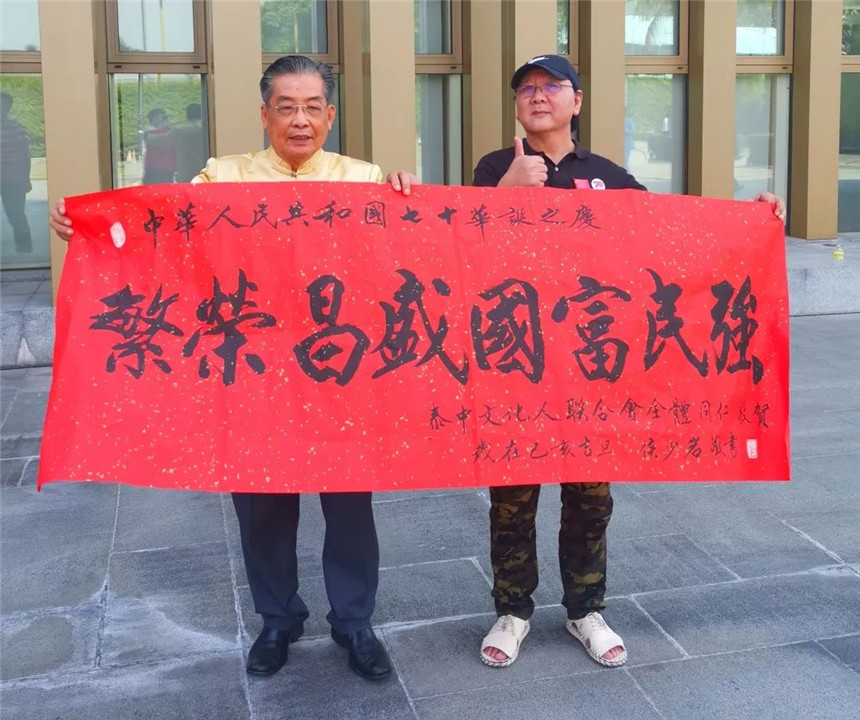 中華人民共和國七十華誕之慶
繁榮昌盛國富民強
泰中文化人聯合會全體同仁敬賀
歲在己亥吉旦 徐少若敬書